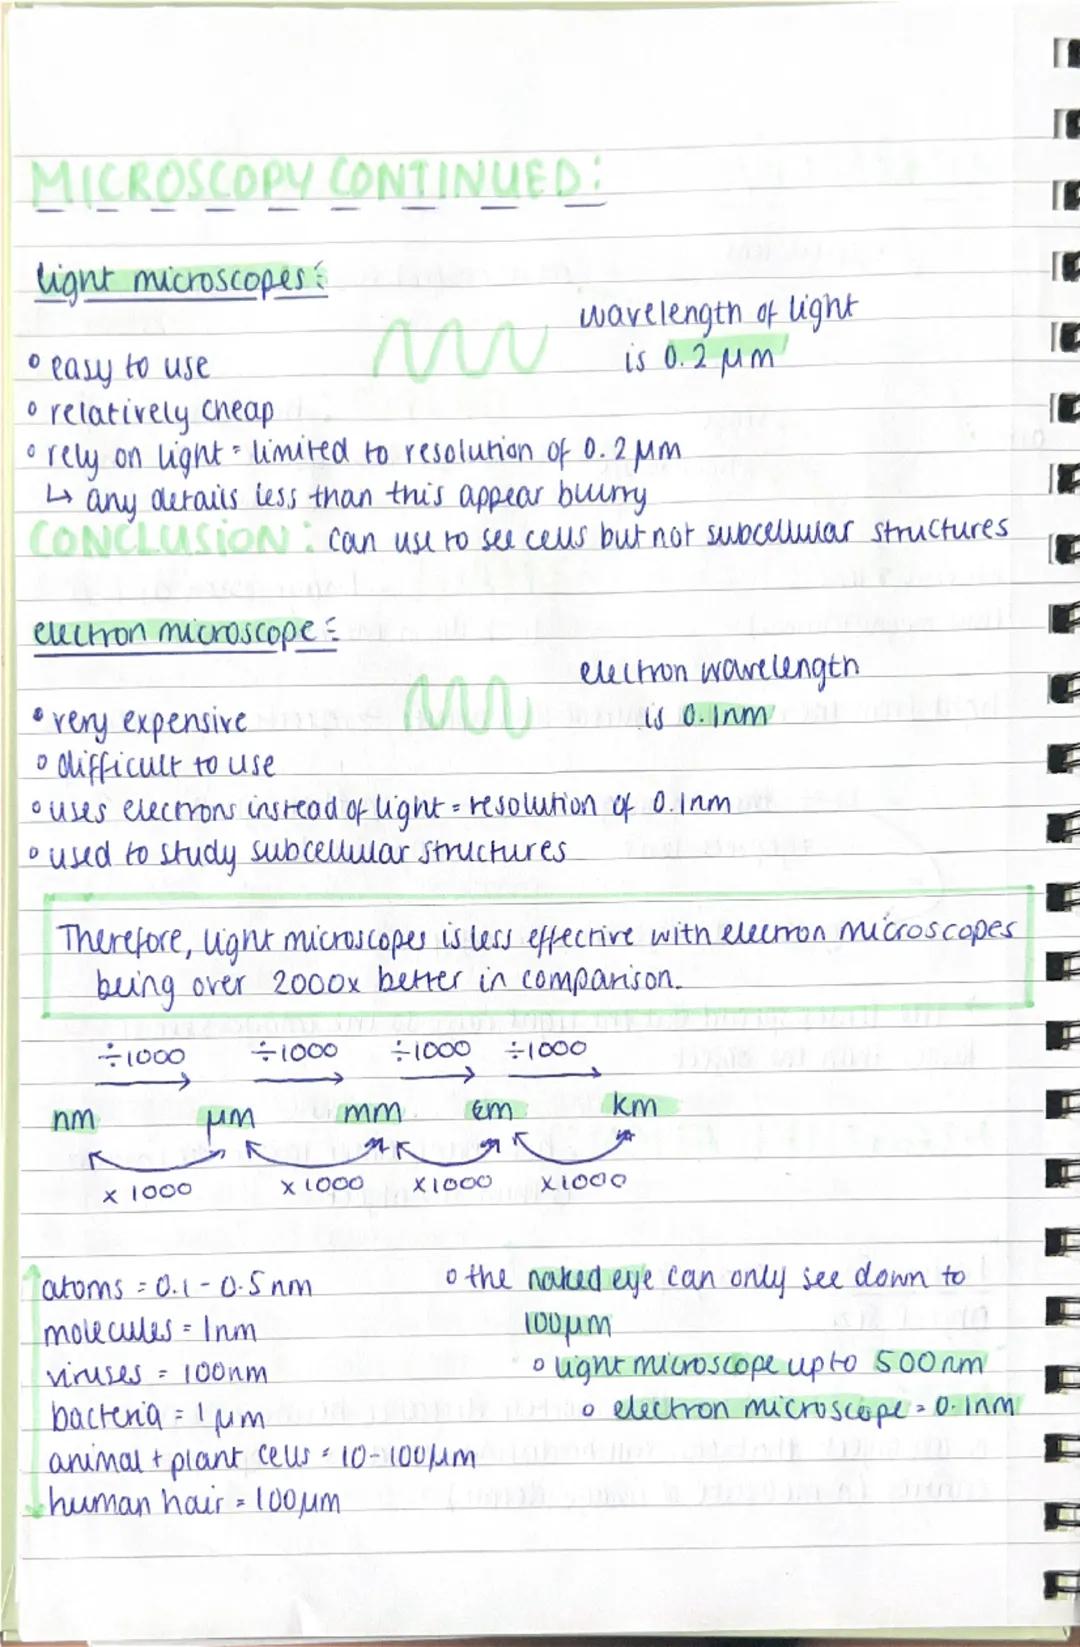 MICROSCOPY CONTINUED:
light microscopes:
wavelength of light
is 0.2 μm
• easy to use
• relatively cheap
• rely on light = limited to resolution of 0.2 μm
↳ any details less than this appear blurry
CONCLUSION: can use to see cells but not subcellular structures
electron microscope:
electron wavelength
is 0.1nm
• very expensive
• difficult to use
• uses electrons instead of light = resolution of 0.1nm
• used to study subcellular structures
Therefore, light microscopes is less effective with electron microscopes
being over 2000x better in comparison.
÷1000 ÷1000 ÷1000 ÷1000
nm μm mm m km
x 1000 x 1000 x1000 x1000
atoms = 0.1 - 0.5 nm
molecules = 1nm
viruses = 100nm
bacteria = 1 μm
animal + plant cells = 10-100μm
human hair = 100μm
• the naked eye can only see down to
100μm
• light microscope up to 500nm
• electron microscope = 0.1nm